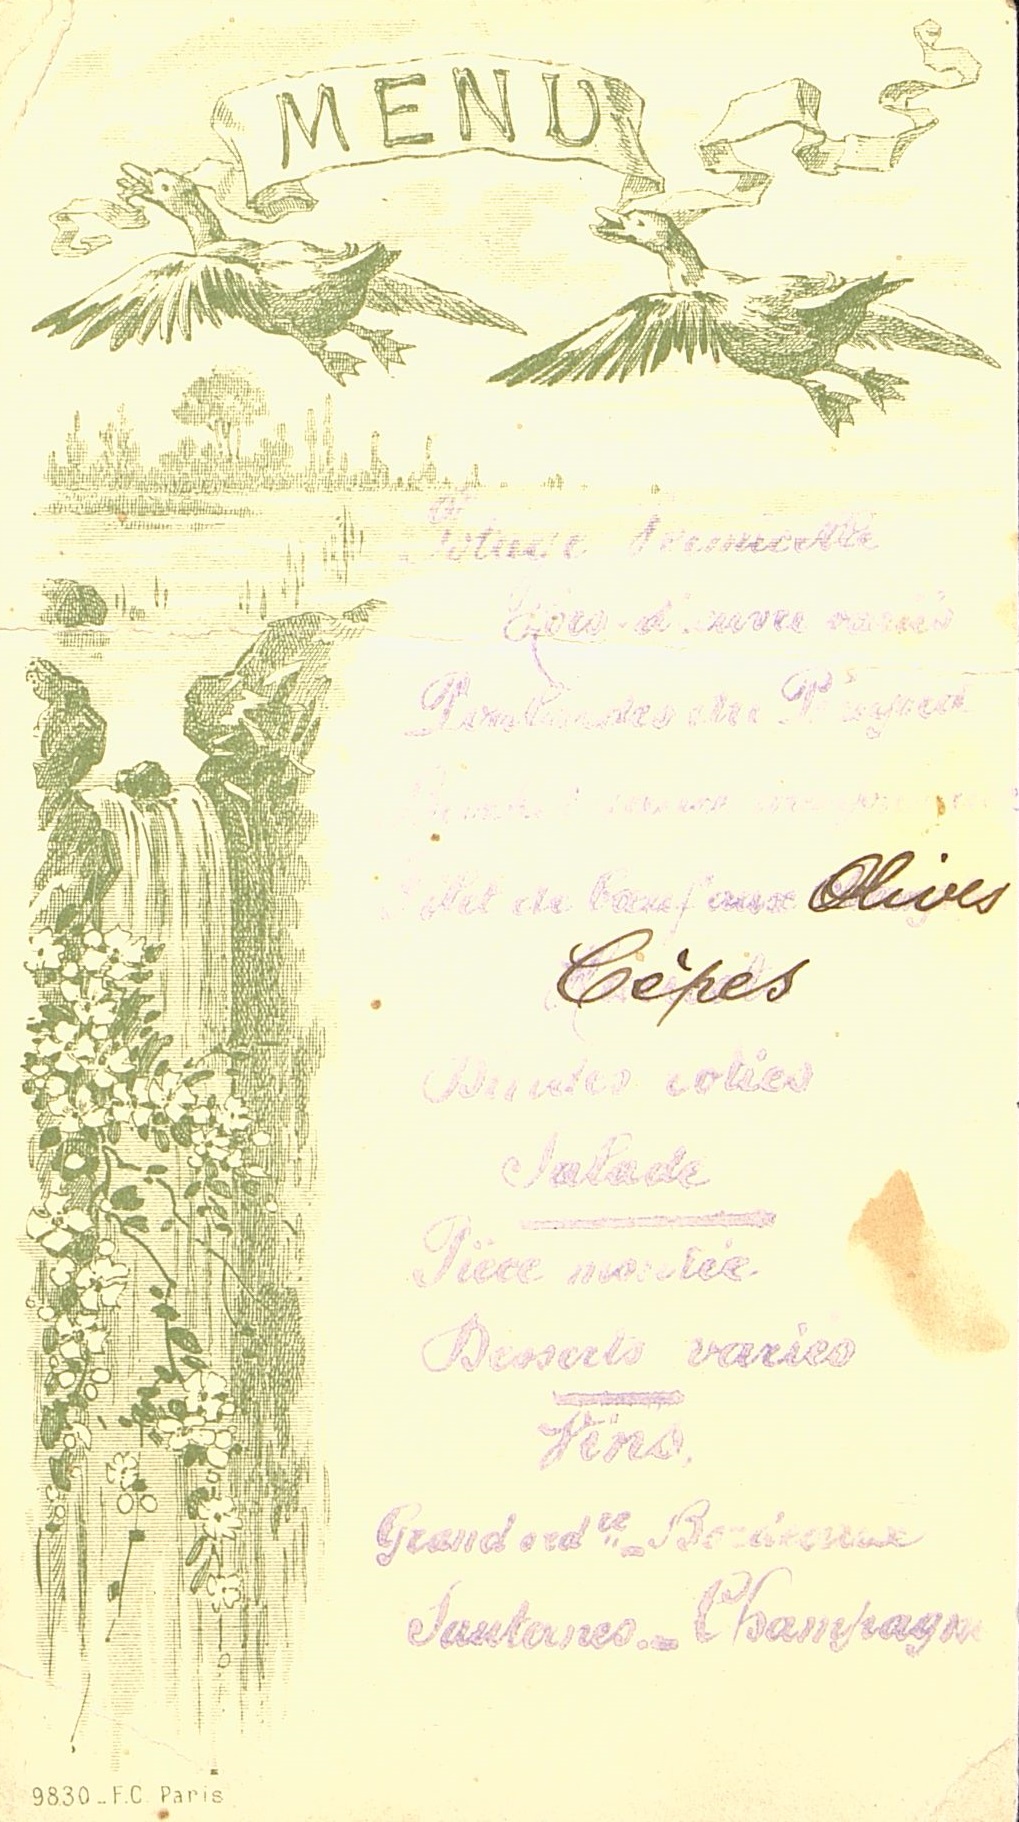 MENU
Potage Vermicelle
Hors-d'œuvre variés
Galantines du Périgord
Filet de bœuf aux Olives
Cèpes
Dindes roties
Salade
Pièce montée
Desserts variés
Vins.
Grand ord<sup>re</sup> - Bordeaux
Sauternes.- Champagne
9830 - F.C. Paris